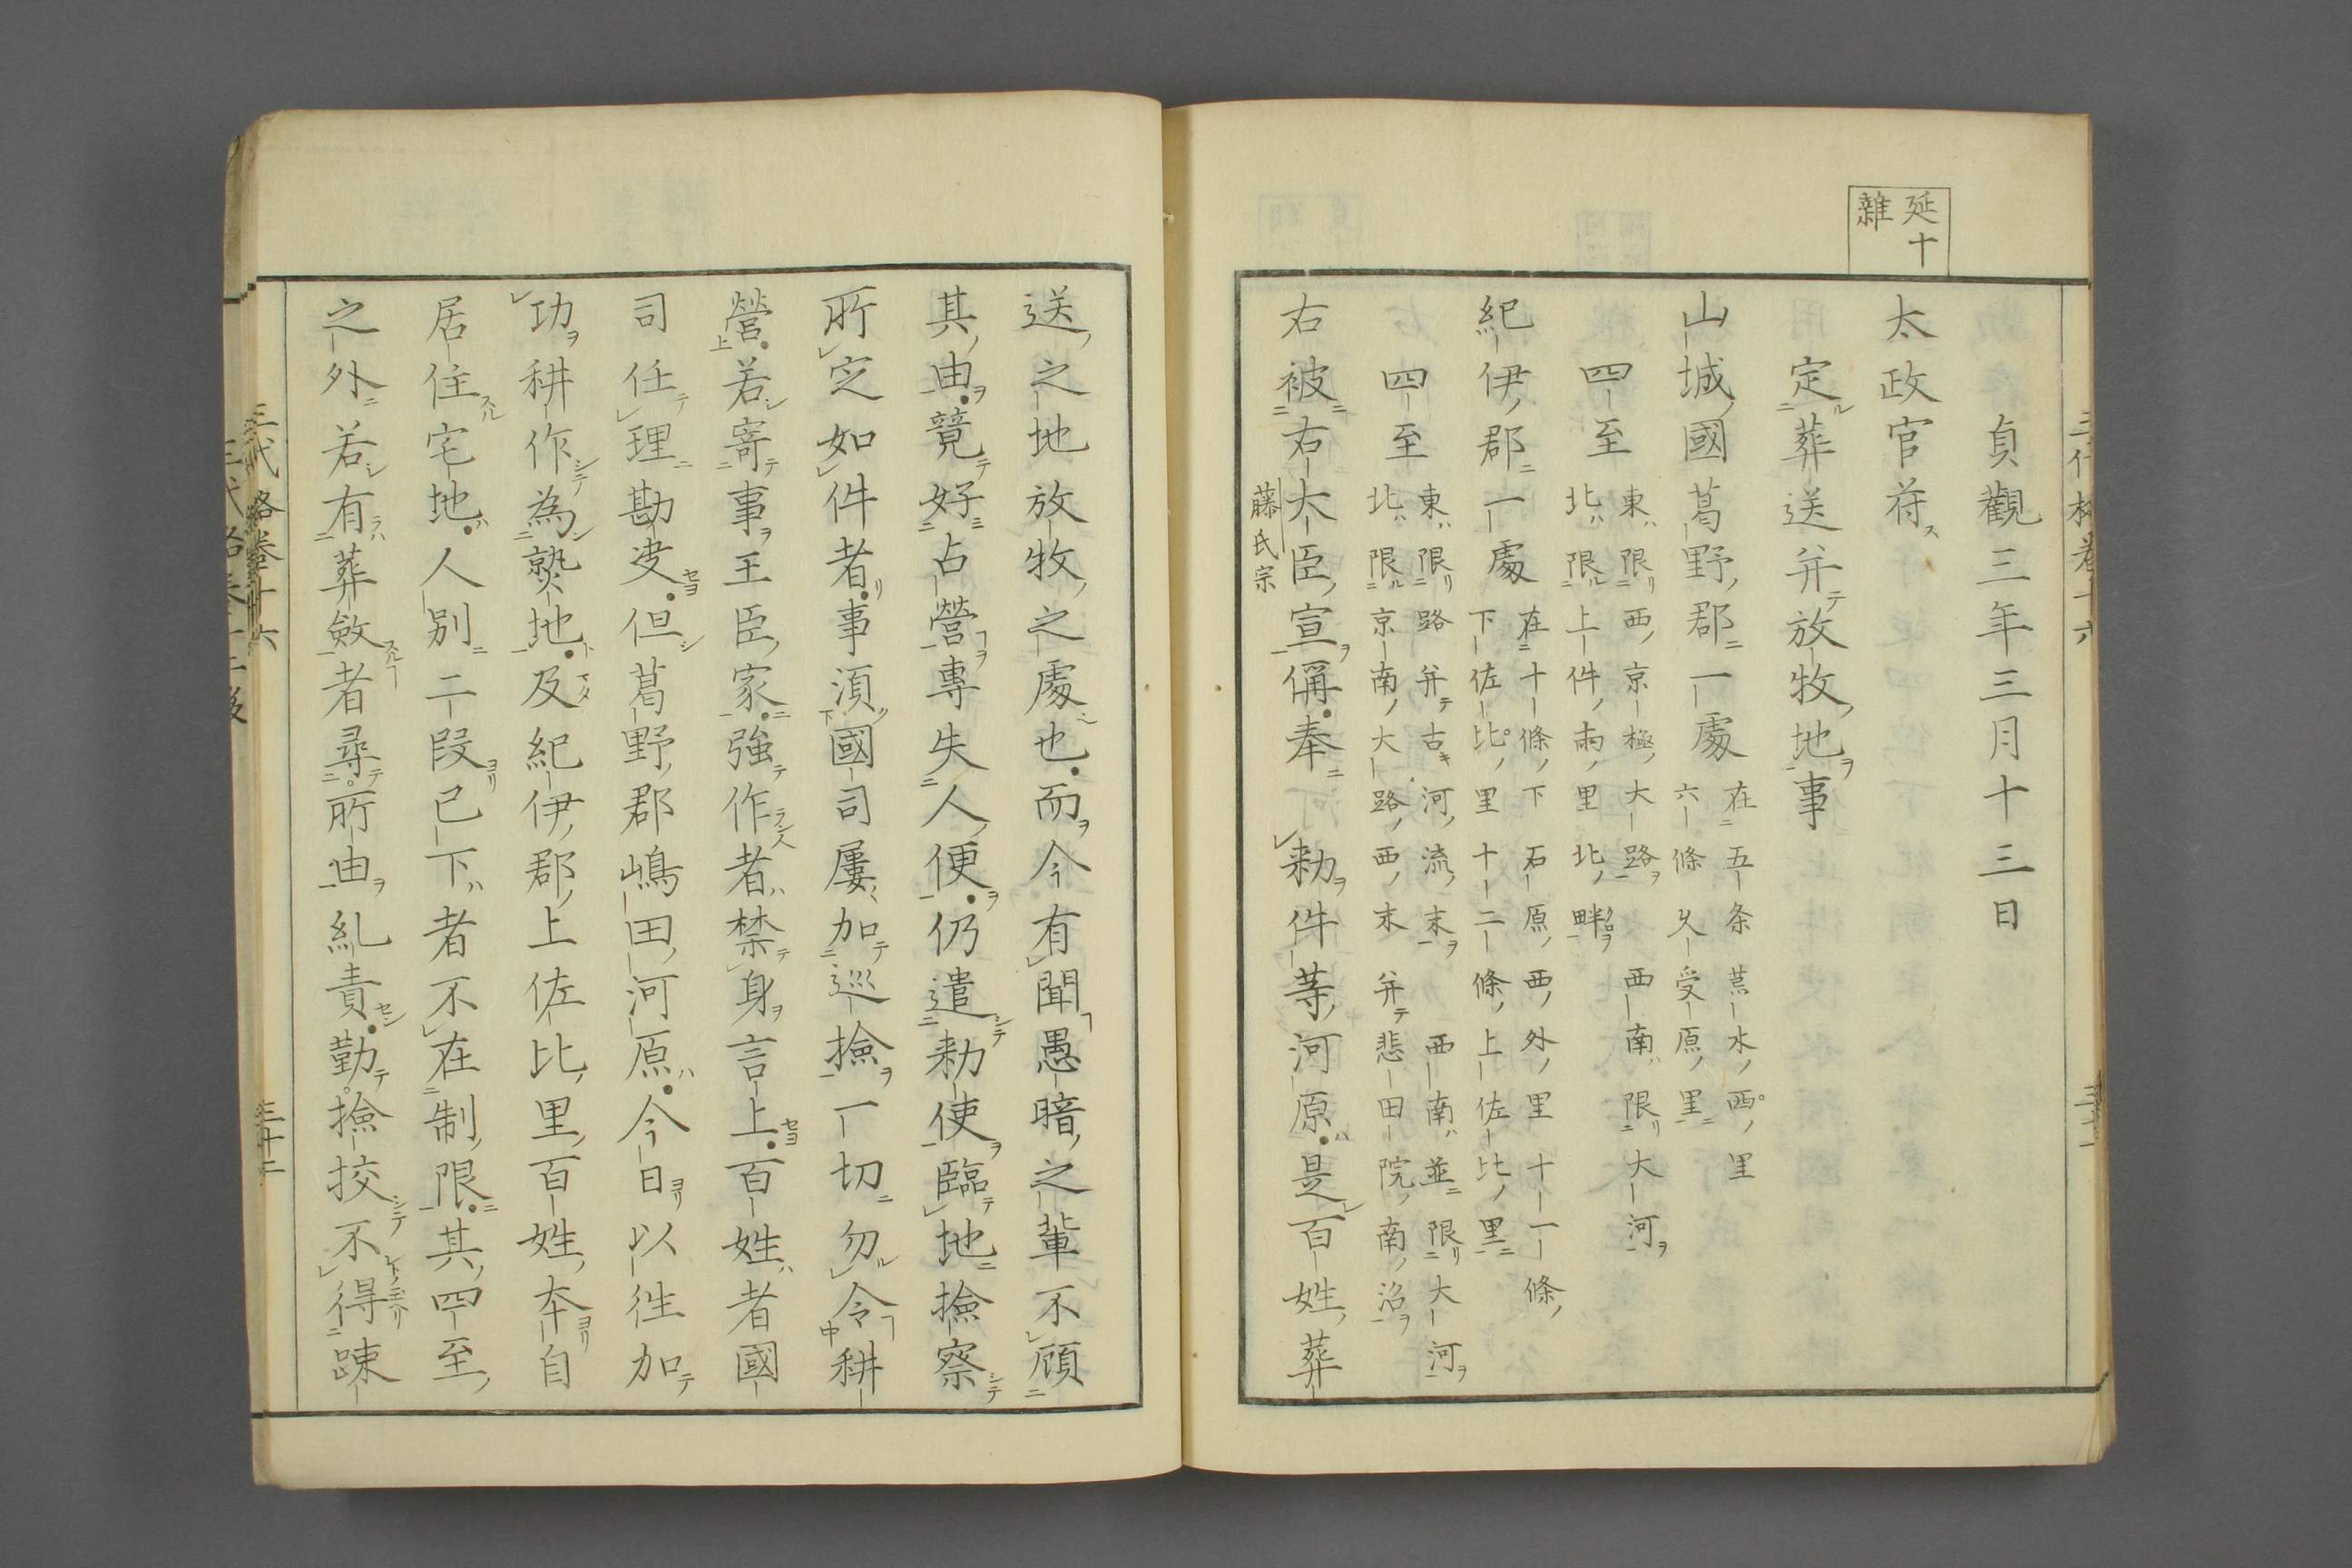 延十
雜
貞觀三年三月十三日
太政官苻
定葬送并放牧地事
山城國葛野郡一處
在五条荒水西里
六條久受原里
四至
東限西京極大路 西南限大河
北限上件兩里北畔
紀伊郡一處
在十條下石原西外里十一條
下佐比里十二條上佐比里
四至
東限路并古河流末 西南並限大河
北限京南大路西末并悲田院南沼
右被右大臣宣偁奉勑件等河原是百姓葬
藤氏宗
送之地放牧之處也而今有聞愚暗之輩不顧
其由競好占營專失人便仍遣勑使臨地撿察
所定如件者事湏國司屢加巡撿一切勿令耕
營若寄事王臣家強作者禁身言上百姓者國
司任理勘决但葛野郡嶋田河原今日以往加
功耕作為熟地及紀伊郡上佐比里百姓夲自
居住宅地人別二段已下者不在制限其四至
之外若有葬斂者尋所由糺責勤撿挍不得踈
三十二